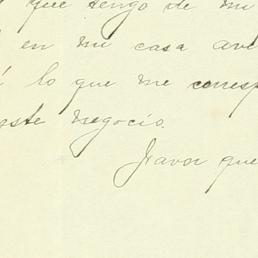 que tengo de mi
en mi casa ave
lo que me corresp
este negocio.
Favor que